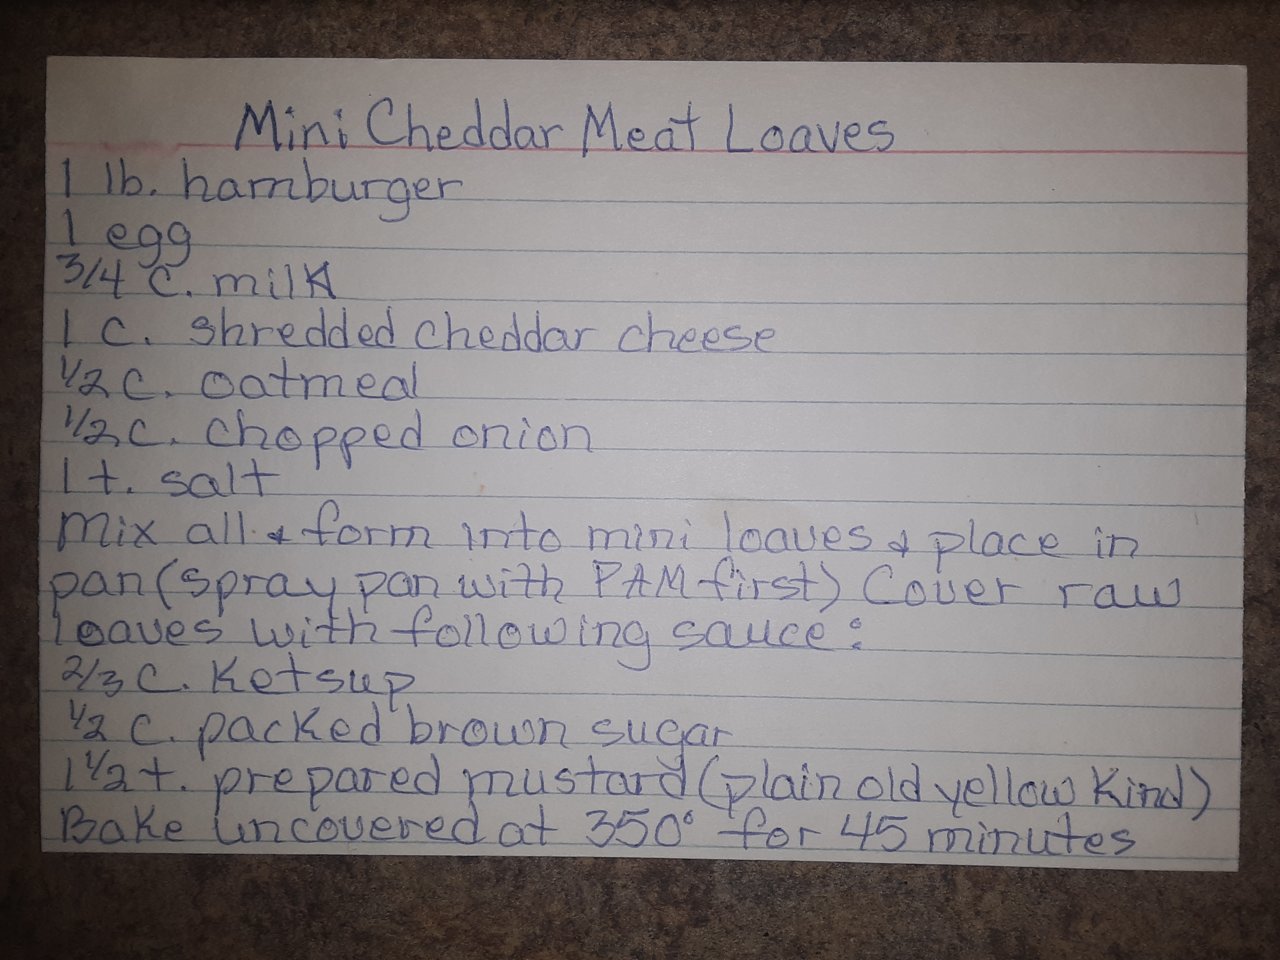 Mini Cheddar Meat Loaves
1 lb. hamburger
1 egg
3/4 c. milk
1 c. shredded cheddar cheese
1/2 c. oatmeal
1/2 c. chopped onion
1 t. salt
Mix all & form into mini loaves & place in
pan (spray pan with PAM first) Cover raw
loaves with following sauce:
2/3 c. Ketsup
1/2 c. packed brown sugar
1 1/2 t. prepared mustard (plain old yellow kind)
Bake uncovered at 350° for 45 minutes